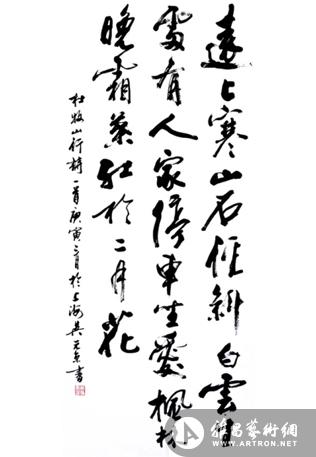 遠上寒山石徑斜白雲生
處有人家停車坐愛楓林
晚霜葉紅於二月花
杜牧山行詩一首庚寅三月於上海吳元京書
雅昌藝術網
WWW.ARTRON.NET